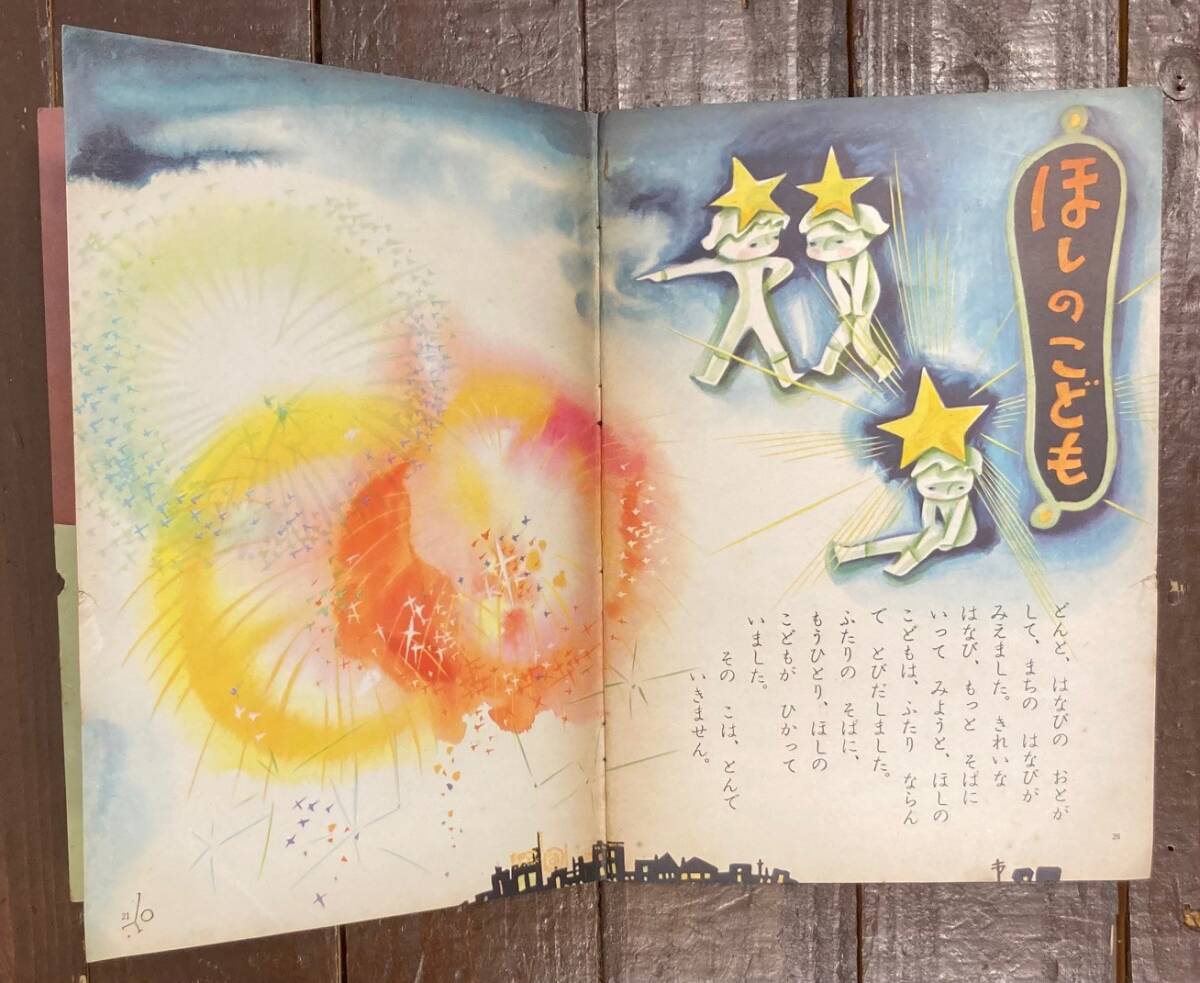 ほしのこども
どんと、はなびの　おとが
して、まちの　はなびが
みえました。きれいな
はなび、もっと　そばに
いって　みようと、ほしの
こどもは、ふたり　ならん
で　とびだしました。
ふたりの　そばに、
もうひとり、ほしの
こどもが　ひかって
いました。
その　こは、とんで
いきません。
20
21